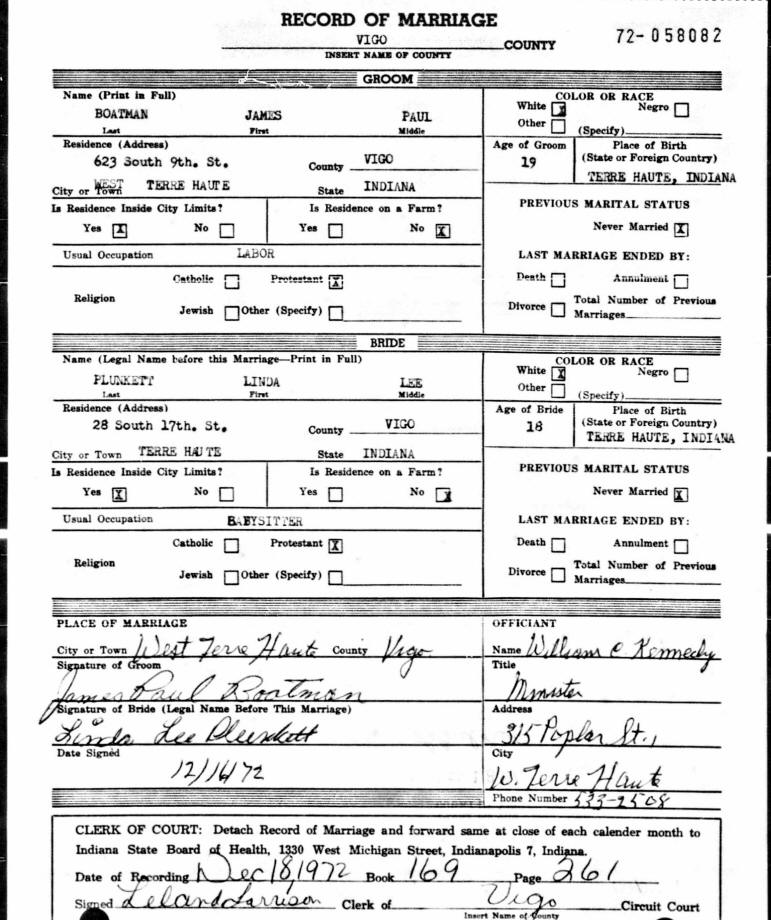 RECORD OF MARRIAGE
72-058082
VIGO COUNTY
INSERT NAME OF COUNTY
GROOM
Name (Print in Full)
BOATMAN JAMES PAUL
Last First Middle
COLOR OR RACE
White X Negro
Other (Specify)
Residence (Address)
623 South 9th. St. County VIGO
City or Town WEST TERRE HAUTE State INDIANA
Age of Groom
19
Place of Birth
(State or Foreign Country)
TERRE HAUTE, INDIANA
Is Residence Inside City Limits?
Yes X No
Is Residence on a Farm?
Yes No X
PREVIOUS MARITAL STATUS
Never Married X
Usual Occupation LABOR
LAST MARRIAGE ENDED BY:
Death Annulment
Divorce Total Number of Previous
Marriages
Religion
Catholic Protestant X
Jewish Other (Specify)
BRIDE
Name (Legal Name before this Marriage—Print in Full)
PLUNKETT LINDA LEE
Last First Middle
COLOR OR RACE
White X Negro
Other (Specify)
Residence (Address)
28 South 17th. St. County VIGO
City or Town TERRE HAUTE State INDIANA
Age of Bride
18
Place of Birth
(State or Foreign Country)
TERRE HAUTE, INDIANA
Is Residence Inside City Limits?
Yes X No
Is Residence on a Farm?
Yes No X
PREVIOUS MARITAL STATUS
Never Married X
Usual Occupation BABYSITTER
LAST MARRIAGE ENDED BY:
Death Annulment
Divorce Total Number of Previous
Marriages
Religion
Catholic Protestant X
Jewish Other (Specify)
PLACE OF MARRIAGE
City or Town West Terre Haute County Vigo
Signature of Groom
James Paul Boatman
Signature of Bride (Legal Name Before This Marriage)
Linda Lee Plunkett
Date Signed
12/16/72
OFFICIANT
Name William C Kennedy
Title
Minister
Address
315 Poplar St.,
City
W. Terre Haute
Phone Number 533-2508
CLERK OF COURT: Detach Record of Marriage and forward same at close of each calender month to
Indiana State Board of Health, 1330 West Michigan Street, Indianapolis 7, Indiana.
Date of Recording Dec 18, 1972 Book 169 Page 261
Signed Leland Larrison Clerk of Vigo Circuit Court
Insert Name of County